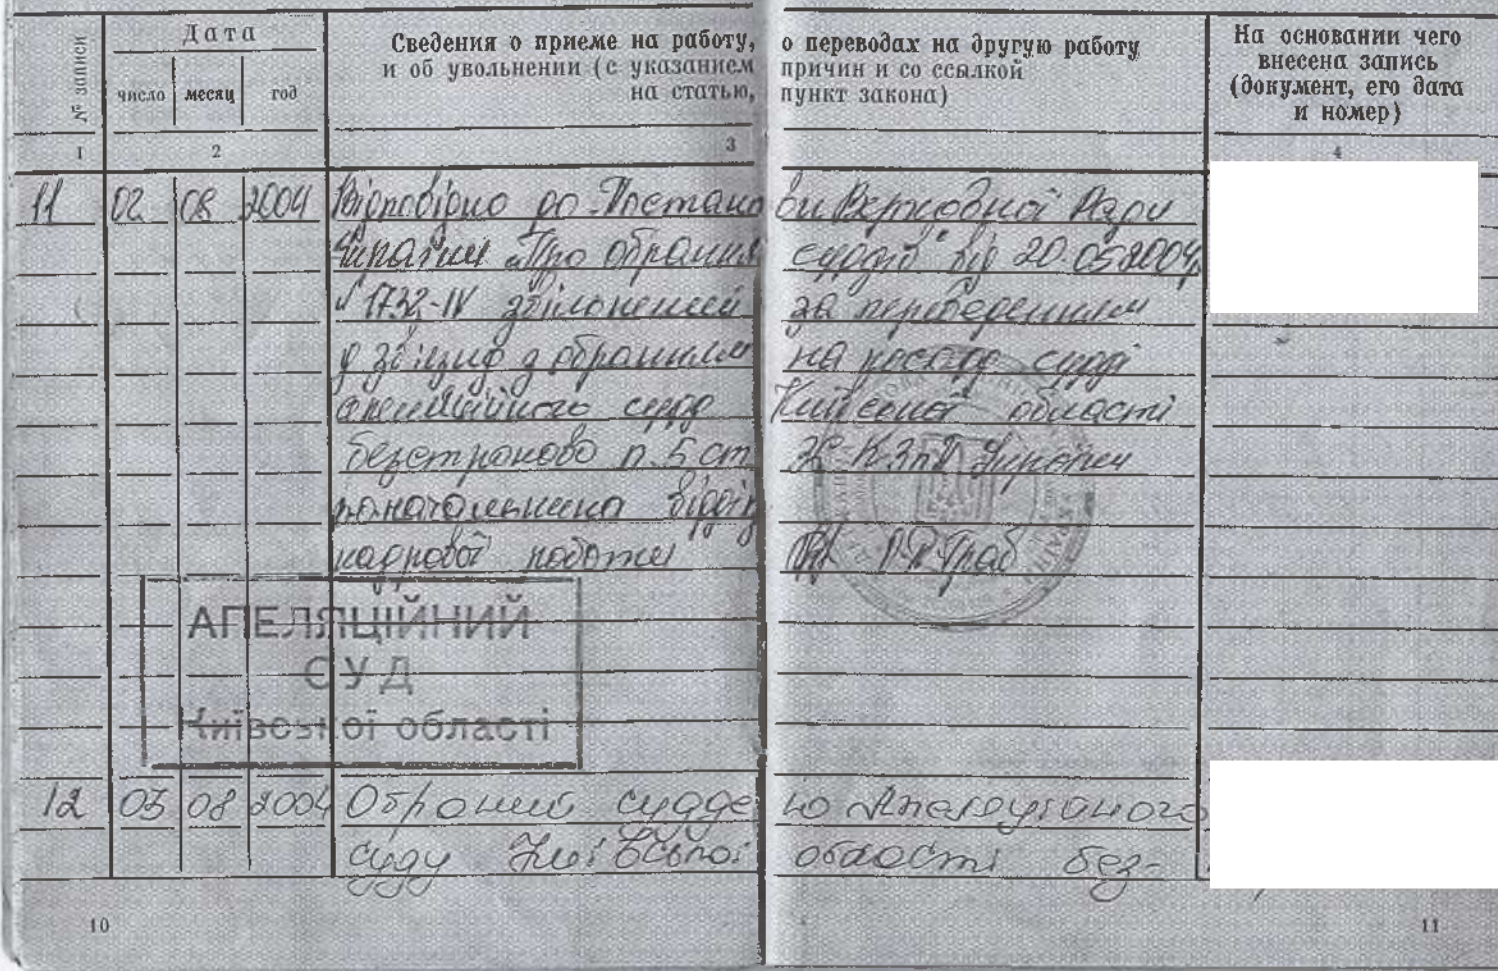 № записи
Дата
Сведения о приеме на работу, о переводах на другую работу
и об увольнении (с указанием причин и со ссылкой
на статью, пункт закона)
На основании чего
внесена запись
(документ, его дата
и номер)
число месяц год
1 2 3 4
11 02 08 2004 Відповідно до Постанови Верховної Ради
України „Про обрання суддів" від 20.05.2004
№1732-IV звільнений за переведенням
у зв'язку з обранням на посаду судді
апеляційного суду Київської області
безстроково п.5 ст. 36 КЗпП України
відділу
кадрової роботи
АПЕЛЯЦІЙНИЙ
СУД
Київської області
12 03 08 2004 Обраний суддею Апеляційного
суду Київської області без-
10
11